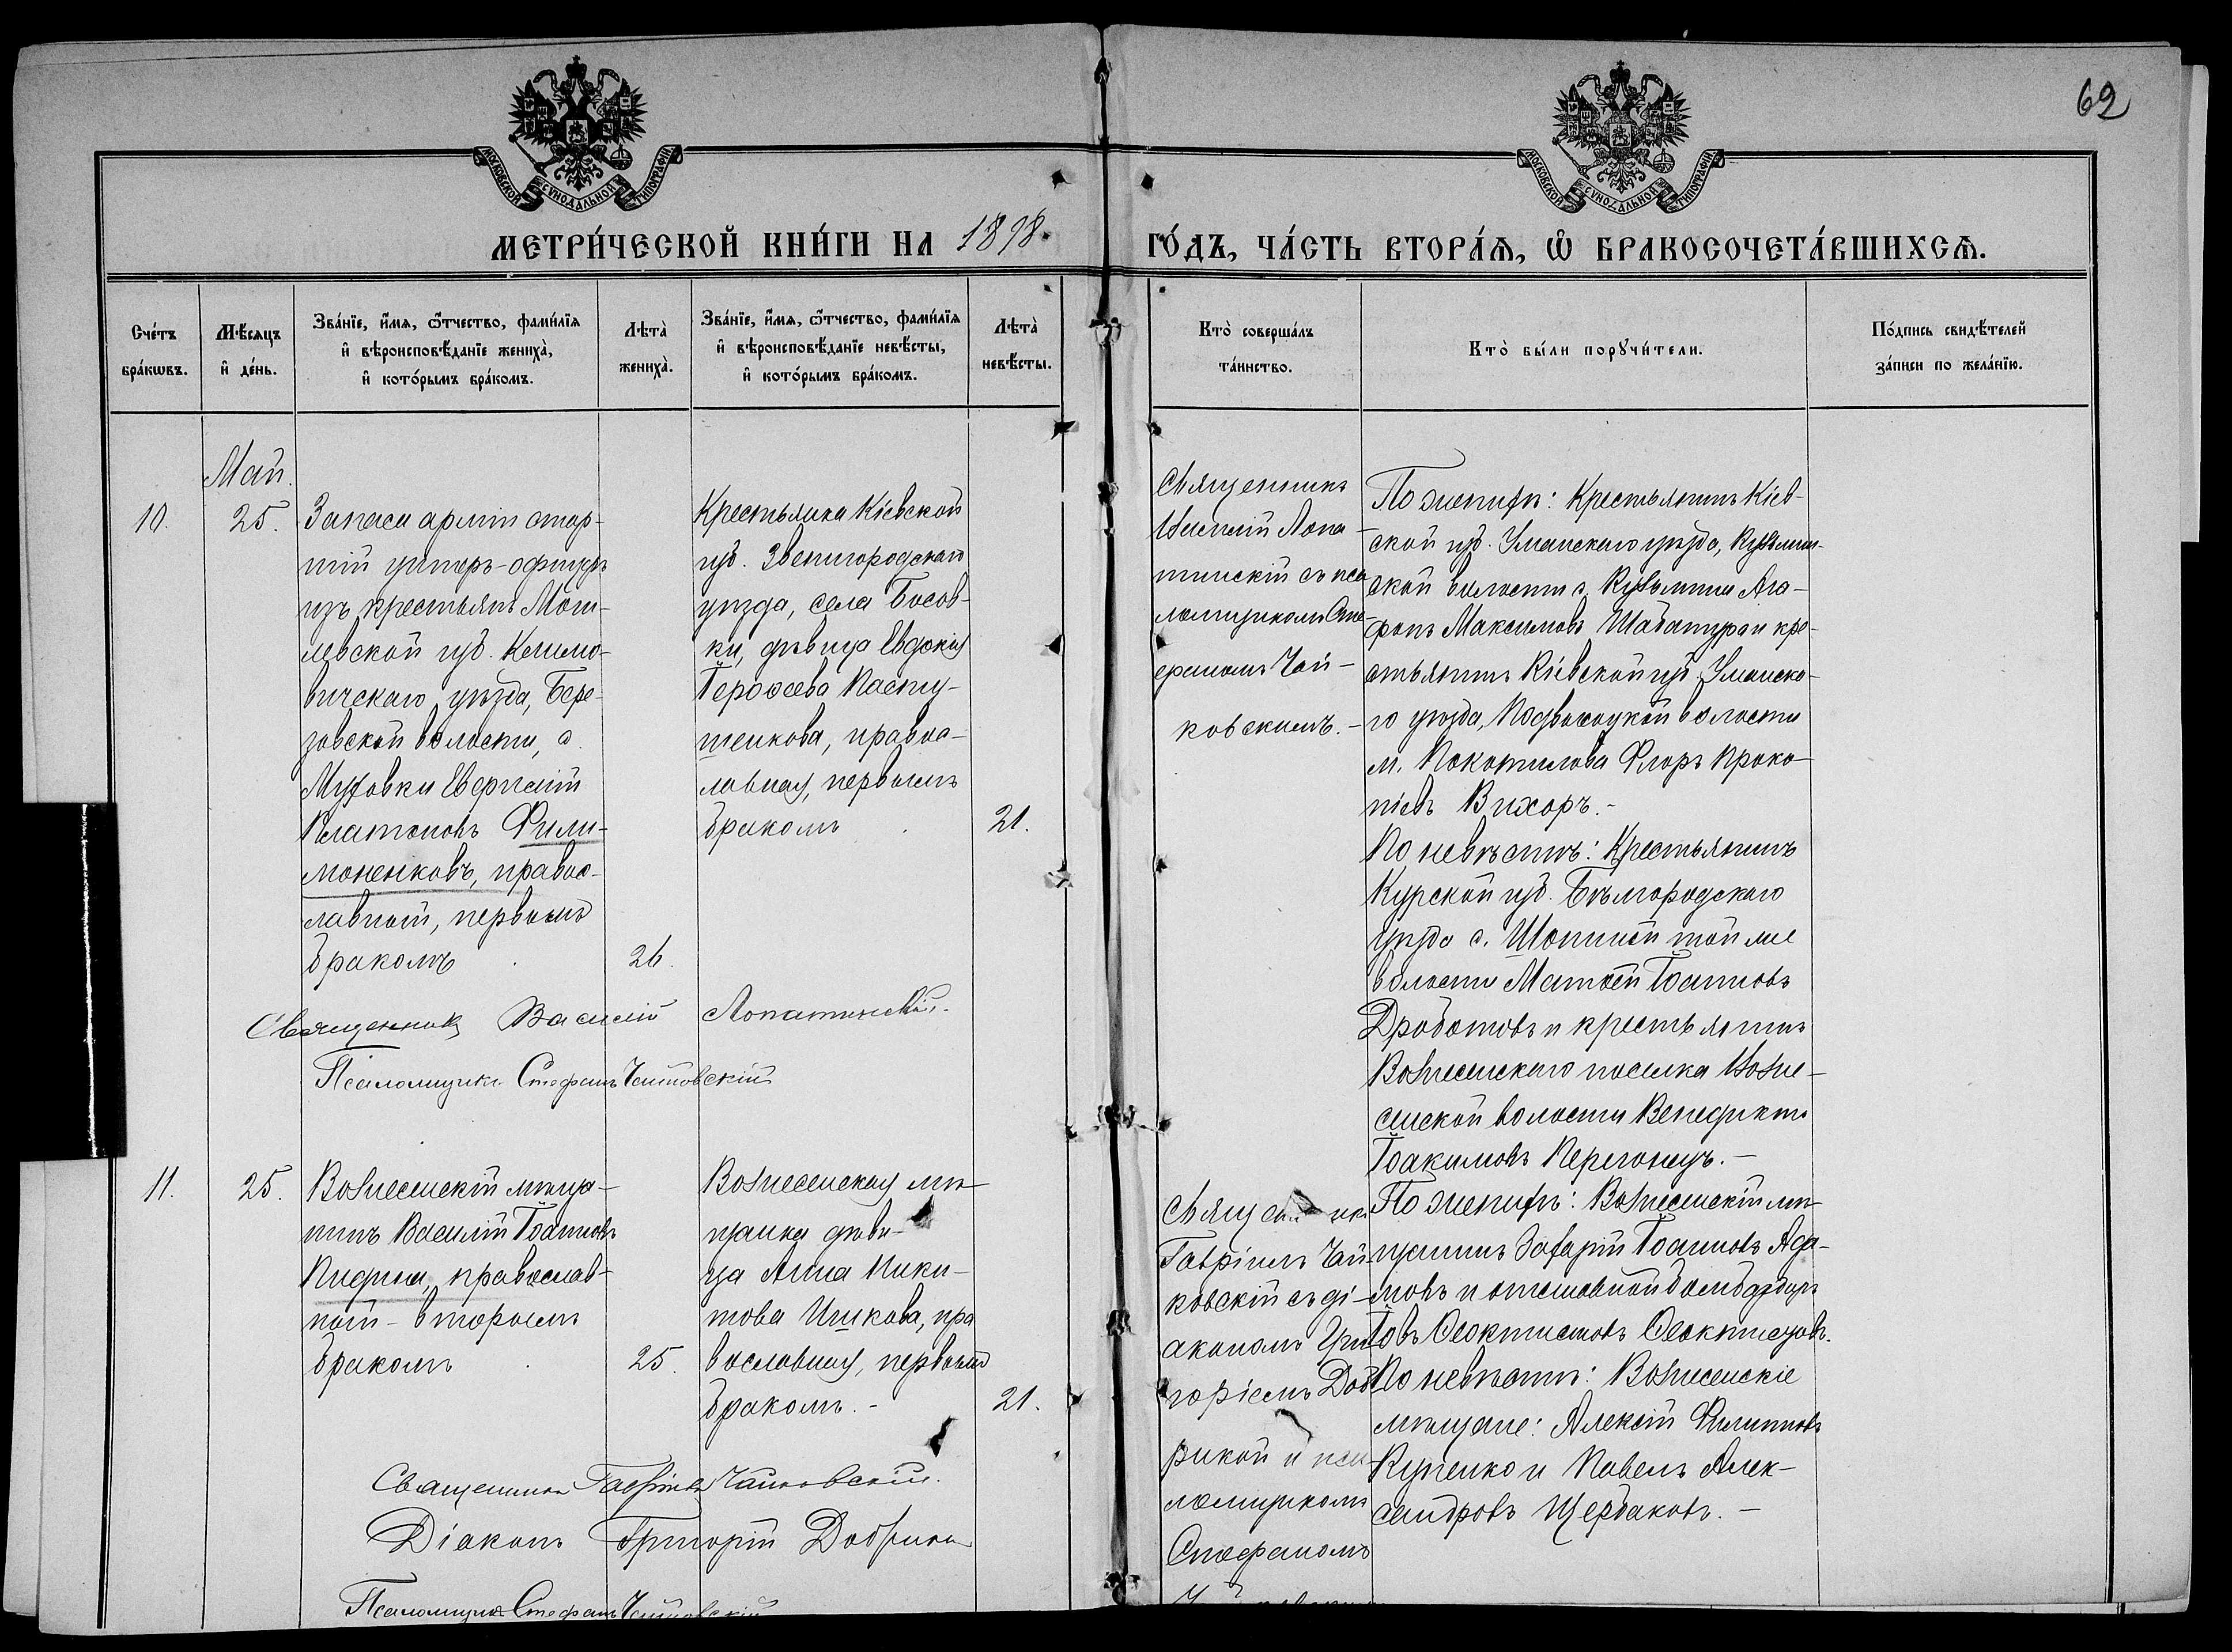 62
МОСКОВСКОЙ СѴНОДАЛЬНОЙ ТИПОГРАФІИ
МОСКОВСКОЙ СѴНОДАЛЬНОЙ ТИПОГРАФІИ
МЕТРИ́ЧЕСКОЙ КНИ́ГИ НА 1898.
ГО́ДЪ, ЧА́СТЬ ВТОРА́Ѧ, Ѽ БРАКОСОЧЕТА́ВШИХСѦ.
Сче́тъ
бра́кѡвъ.
Мѣ́сѧцъ
и҆ де́нь.
Зва́нїе, и҆́мѧ, ѻ҆́тчество, фами́лїѧ
и҆ вѣроисповѣ́данїе жениха̀,
и҆ кото́рымъ бра́комъ.
Лѣта̀
жениха̀.
Зва́нїе, и҆́мѧ, ѻ҆́тчество, фами́лїѧ
и҆ вѣроисповѣ́данїе невѣ́сты,
и҆ кото́рымъ бра́комъ.
Лѣта̀
невѣ́сты.
Кто̀ соверша́лъ
та́инство.
Кто̀ бы́ли порꙋчи́тели.
По́дпись свидѣ́телей
за́писи по жела́нїю.
Май.
10.
25.
Запаса арміи стар-
шій унтеръ-офицеръ
изъ крестьянъ Моги-
левской губ. Климо-
вичскаго уѣзда, Бере-
зовской волости, д.
Евгеній
Платоновъ Фили-
моненковъ, правос-
лавный, первымъ
бракомъ
26.
Крестьянка Кіевской
губ. Звенигородскаго
уѣзда, села Босов-
ки, дѣвица Евдокія
Пасту-
шенкова, правос-
лавная, первымъ
бракомъ
21.
Священникъ
Василій Лопа-
тинскій съ пса
ломщикомъ Сте-
фаномъ Чай-
ковскимъ.-
По женихѣ: Крестьянинъ Кіев-
ской губ. Уманскаго уѣзда, Кузьмин-
ской волости с. Кузьмина Ага-
фонъ Максимовъ Шабатура и кре-
стьянинъ Кіевской губ. Уманска-
го уѣзда, Подвысоцкой волости
м. Покотилова Флоръ Проко-
піевъ Вихоръ.-
По невѣстѣ: Крестьянинъ
Курской губ. Бѣлгородскаго
уѣзда с. Шопиной той же
волости Матѳей Іоанновъ
Дроботовъ и крестьянинъ
Вознесенскаго поселка Возне-
сенской волости Венедиктъ
Іоакимовъ Перегонецъ.-
Священникъ Василій Лопатинскій.
Псаломщикъ Стефанъ Чайковскій
11.
25.
Вознесенскій мѣща-
нинъ Василій Іоанновъ
православ-
ный - вторымъ
бракомъ
25.
Вознесенская мѣ-
щанка дѣви-
ца Анна Ники-
това Ишкова, пра
вославная, первымъ
бракомъ.-
21.
Священникъ
Гавріилъ Чай-
ковскій съ ді-
акономъ Гри
горіемъ Доб
рикой и пса-
ломщикомъ
Стефаномъ
По женихѣ: Вознесенскій мѣ-
щанинъ Захарій Іоанновъ Ада-
мовъ и отставной бомбардиръ
Іовъ Ѳеоктистовъ Ѳеоктистовъ.
По невѣстѣ: Вознесенскіе
мѣщане: Алексій Филипповъ
Куценко и Павелъ Алек-
сандровъ Щербаковъ.-
Священникъ Гавріилъ Чайковскій.
Діаконъ Григорій Добрика
Псаломщикъ Стефанъ Чайковскій